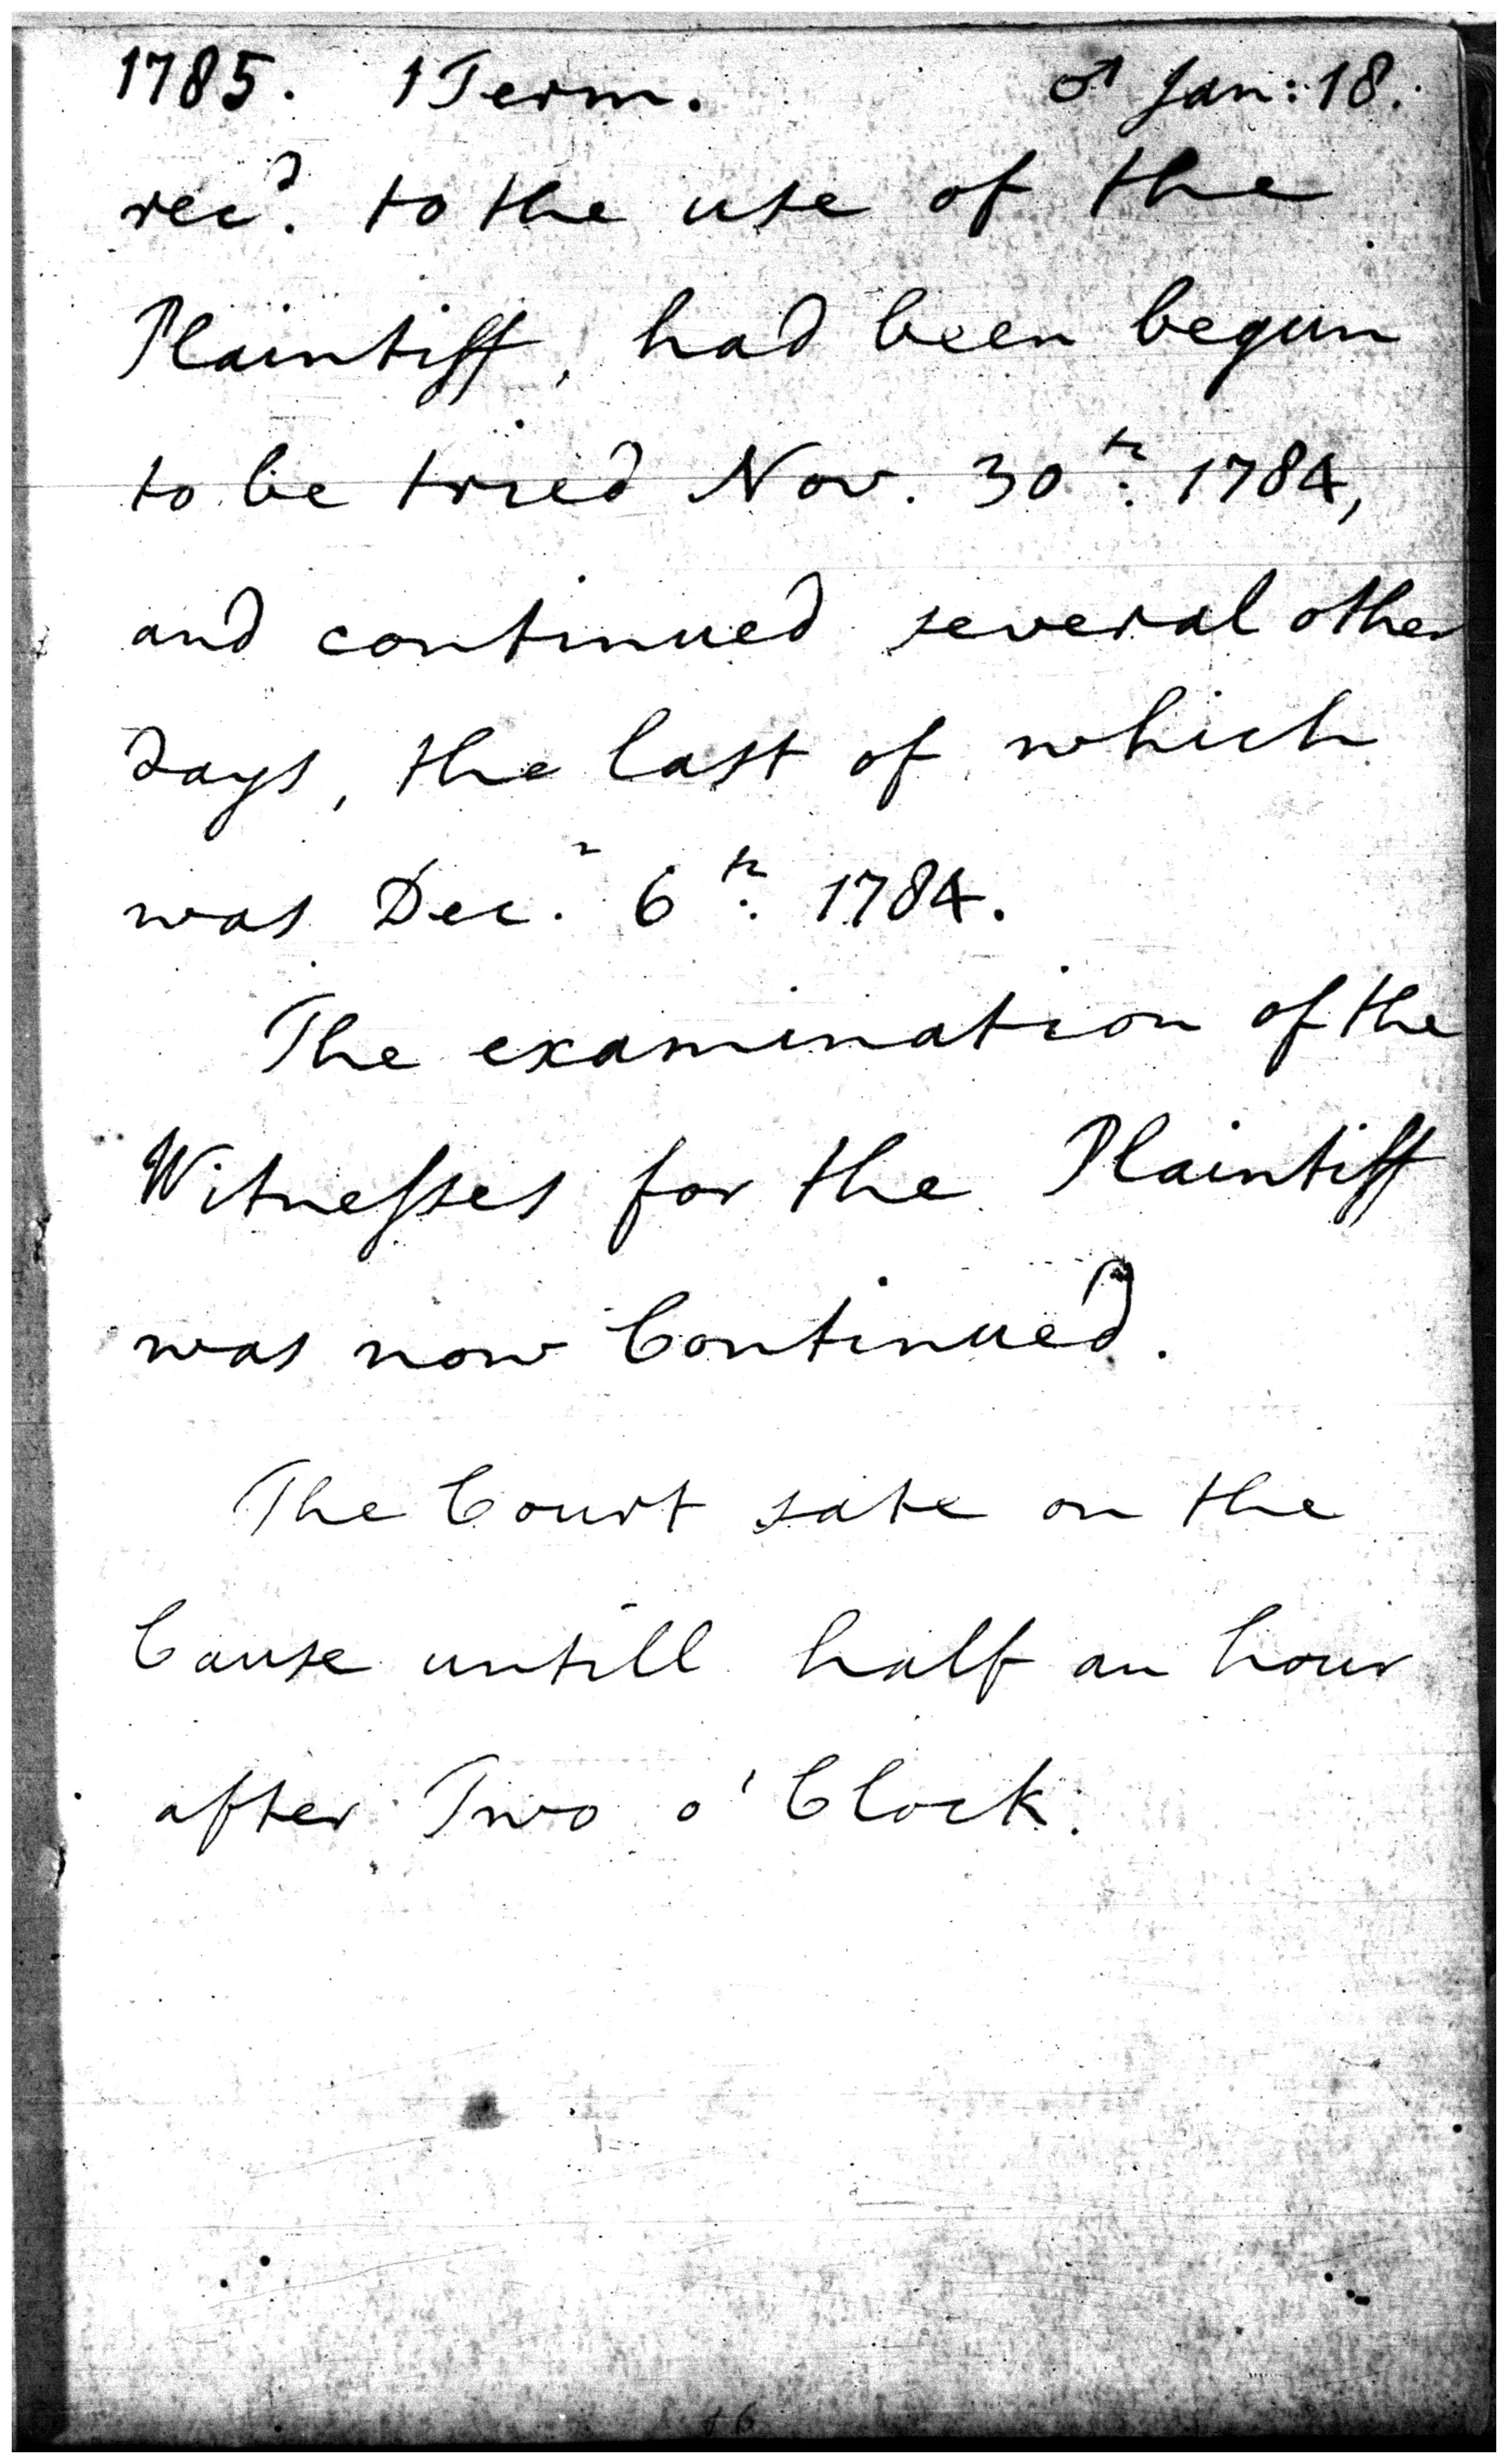 1785. 1 Term. ♂ Jan: 18.
recd. to the use of the
Plaintiff, had been begun
to be tried Nov. 30th. 1784,
and continued several other
days, the last of which
was Decr. 6th. 1784.
The examination of the
Witneſses for the Plaintiff
was now Continued.
The Court sate on the
Cause untill half an hour
after Two o'Clock.
16